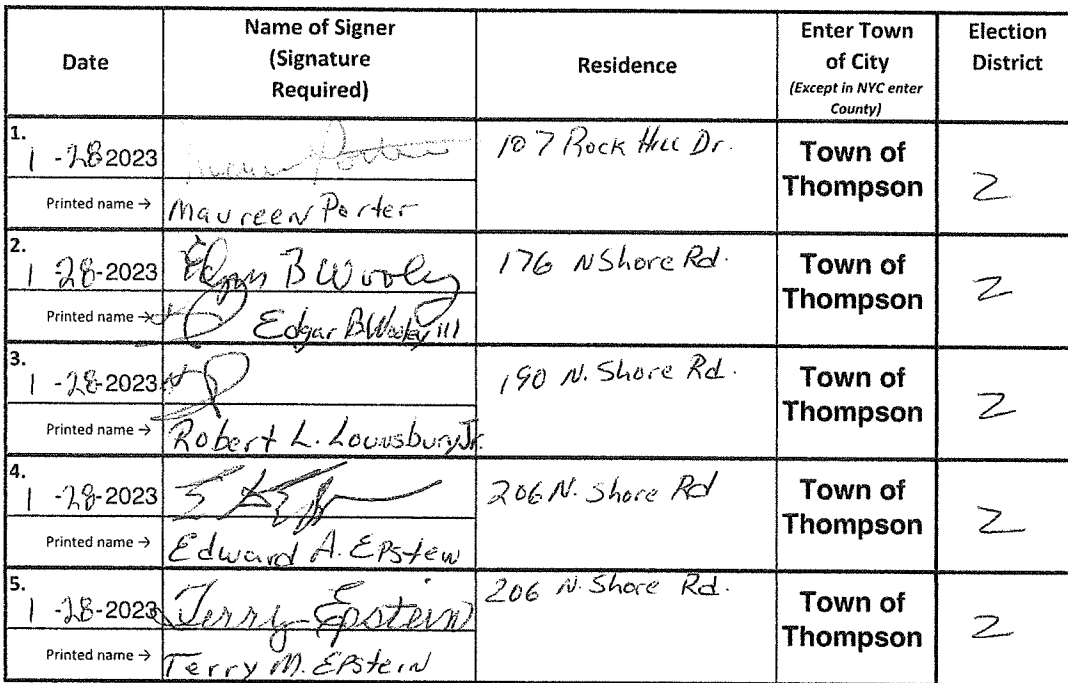 Date
Name of Signer
(Signature
Required)
Residence
Enter Town
of City
(Except in NYC enter
County)
Election
District
1.
1 -28 2023
107 Rock Hill Dr.
Town of
Thompson
2
Printed name →
Maureen Porter
2.
1 -28-2023
Edgar B Wooley
176 N Shore Rd.
Town of
Thompson
2
Printed name →
Edgar B Wooley III
3.
1 -28-2023
190 N. Shore Rd.
Town of
Thompson
2
Printed name →
Robert L. Lounsbury Jr.
4.
1 -28-2023
206 N. Shore Rd
Town of
Thompson
2
Printed name →
Edward A. Epstein
5.
1 -28-2023
Terry Epstein
206 N. Shore Rd.
Town of
Thompson
2
Printed name →
Terry M. Epstein